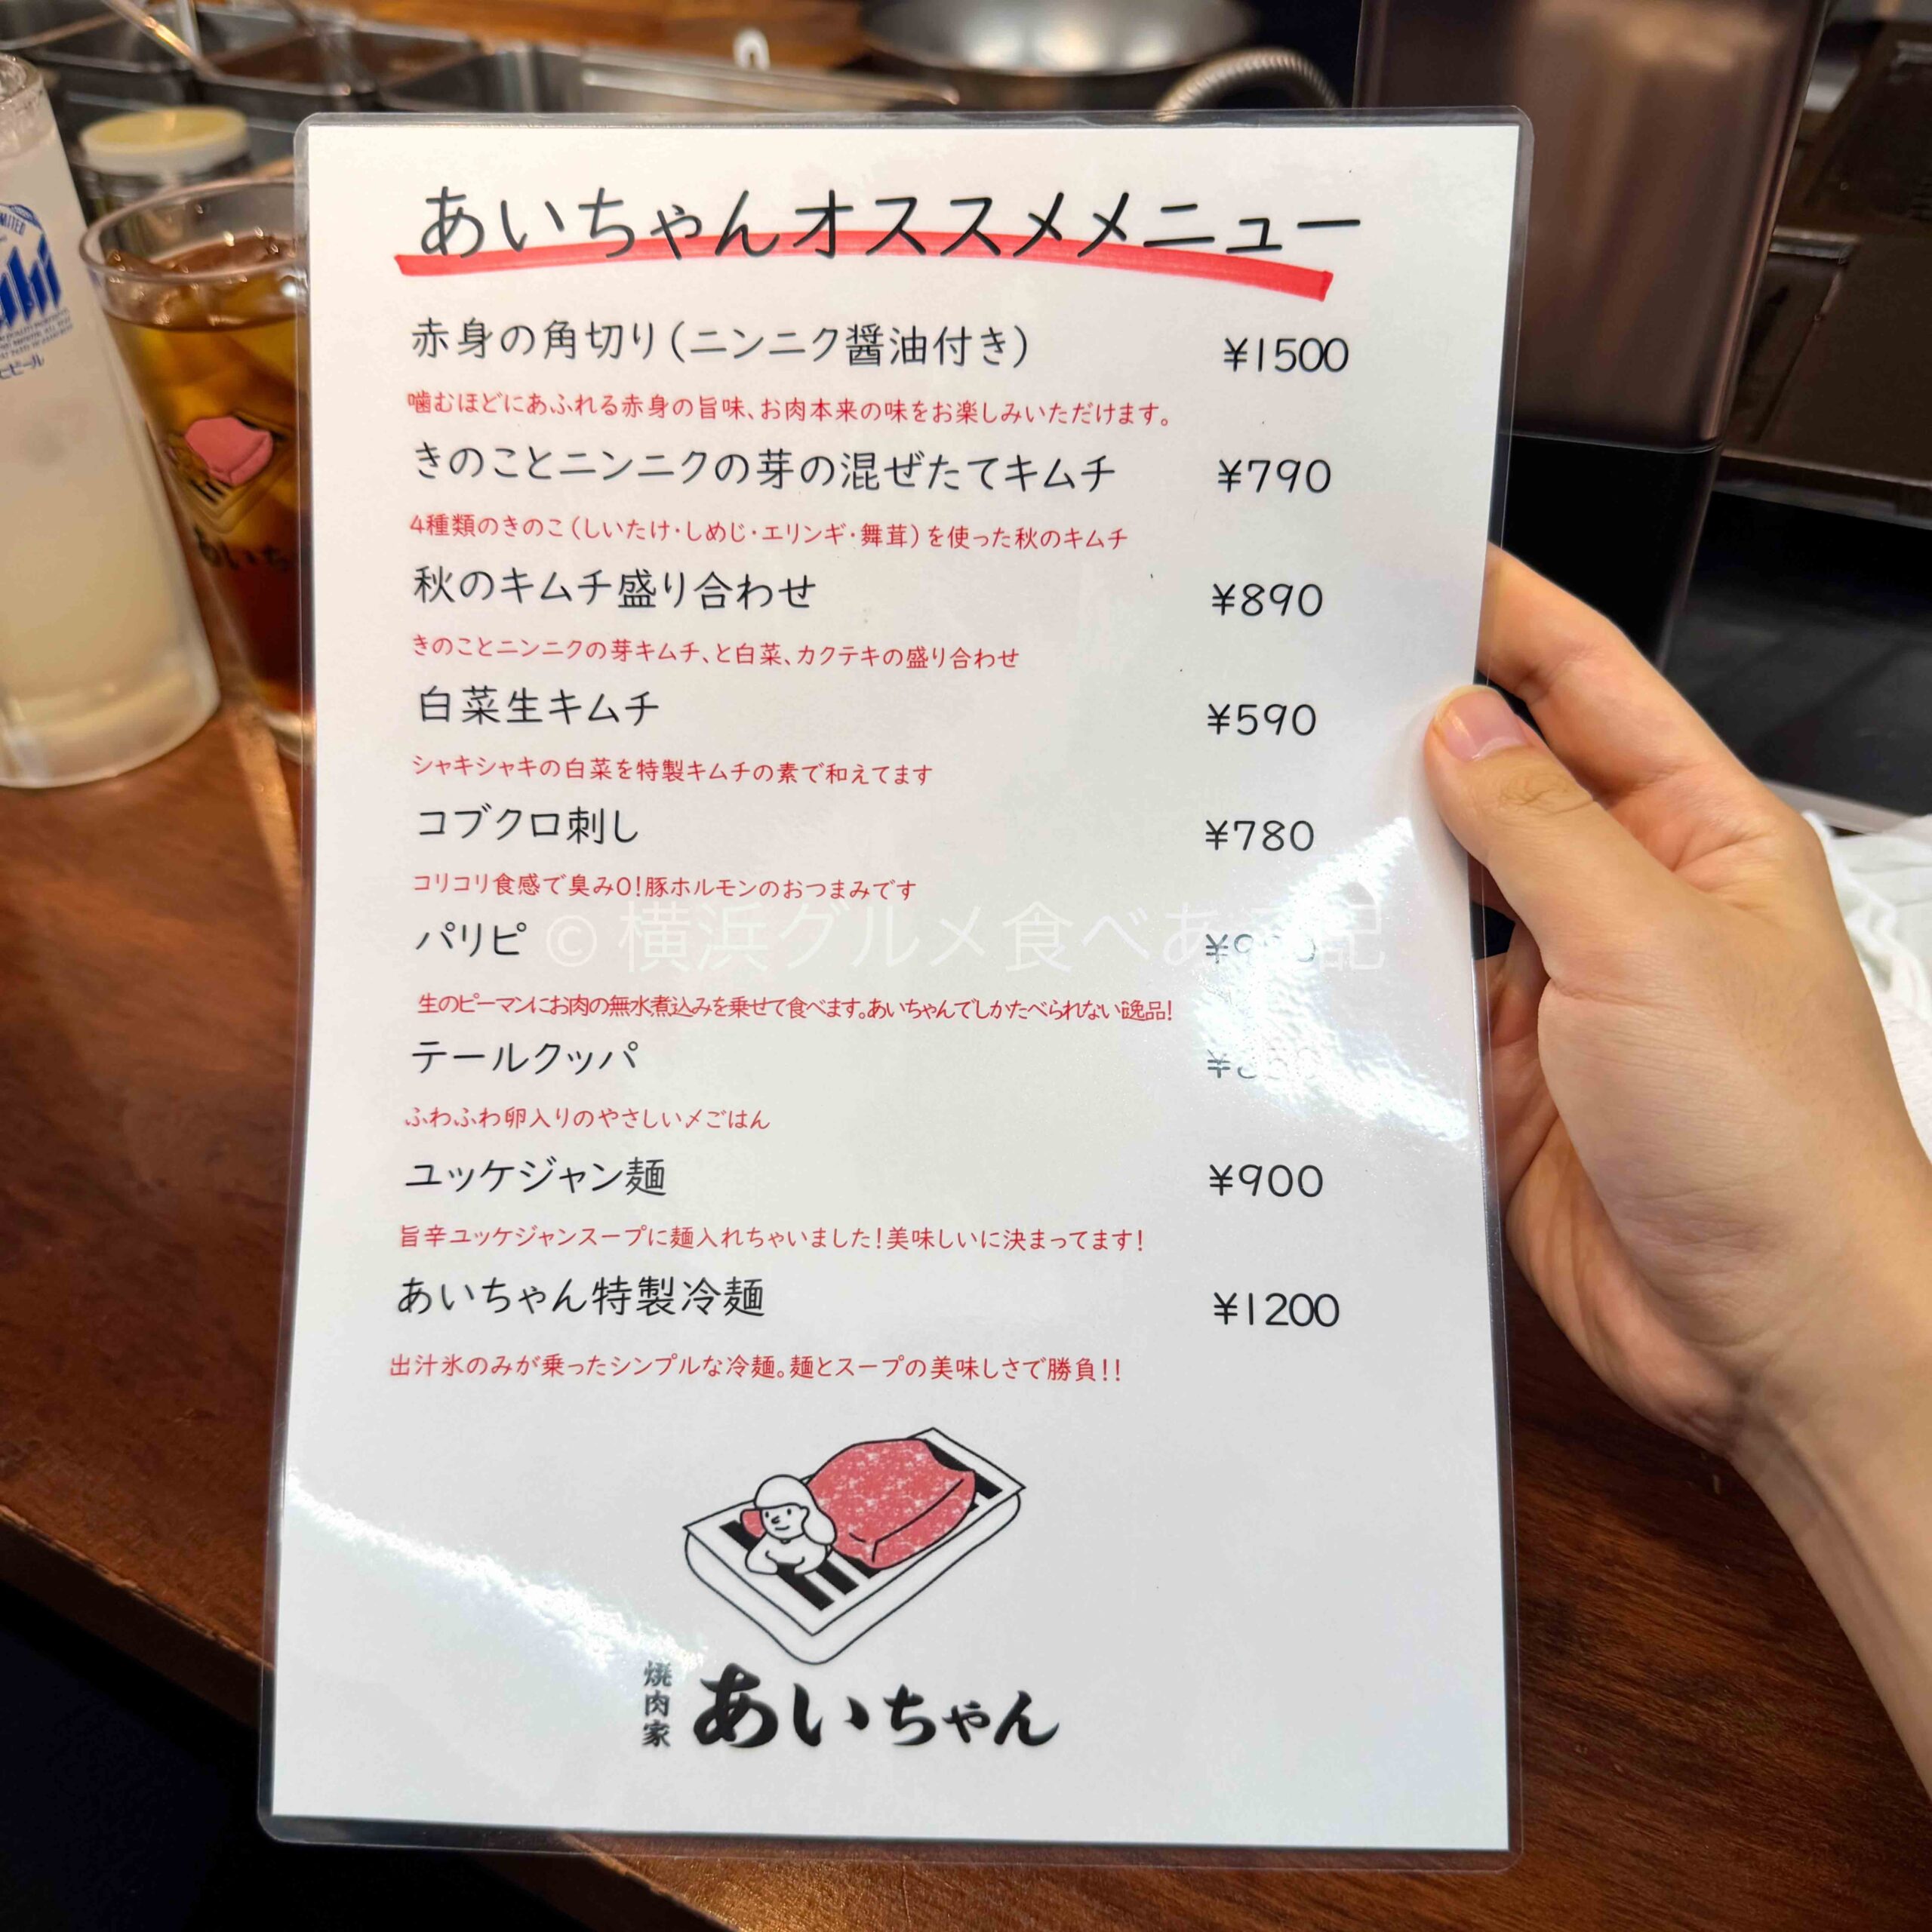 あいちゃんオススメメニュー
赤身の角切り(ニンニク醤油付き) ¥1500
噛むほどにあふれる赤身の旨味、お肉本来の味をお楽しみいただけます。
きのことニンニクの芽の混ぜたてキムチ ¥790
4種類のきのこ(しいたけ・しめじ・エリンギ・舞茸)を使った秋のキムチ
秋のキムチ盛り合わせ ¥890
きのことニンニクの芽キムチ、と白菜、カクテキの盛り合わせ
白菜生キムチ ¥590
シャキシャキの白菜を特製キムチの素で和えてます
コブクロ刺し ¥780
コリコリ食感で臭み0!豚ホルモンのおつまみです
パリピ
© 横浜グルメ食べあるき記
生のピーマンにお肉の無水煮込みを乗せて食べます。あいちゃんでしかたべられない逸品!
テールクッパ
ふわふわ卵入りのやさしい〆ごはん
ユッケジャン麺 ¥900
旨辛ユッケジャンスープに麺入れちゃいました!美味しいに決まってます!
あいちゃん特製冷麺 ¥1200
出汁氷のみが乗ったシンプルな冷麺。麺とスープの美味しさで勝負!!
焼肉家
あいちゃん
ビール
あいち